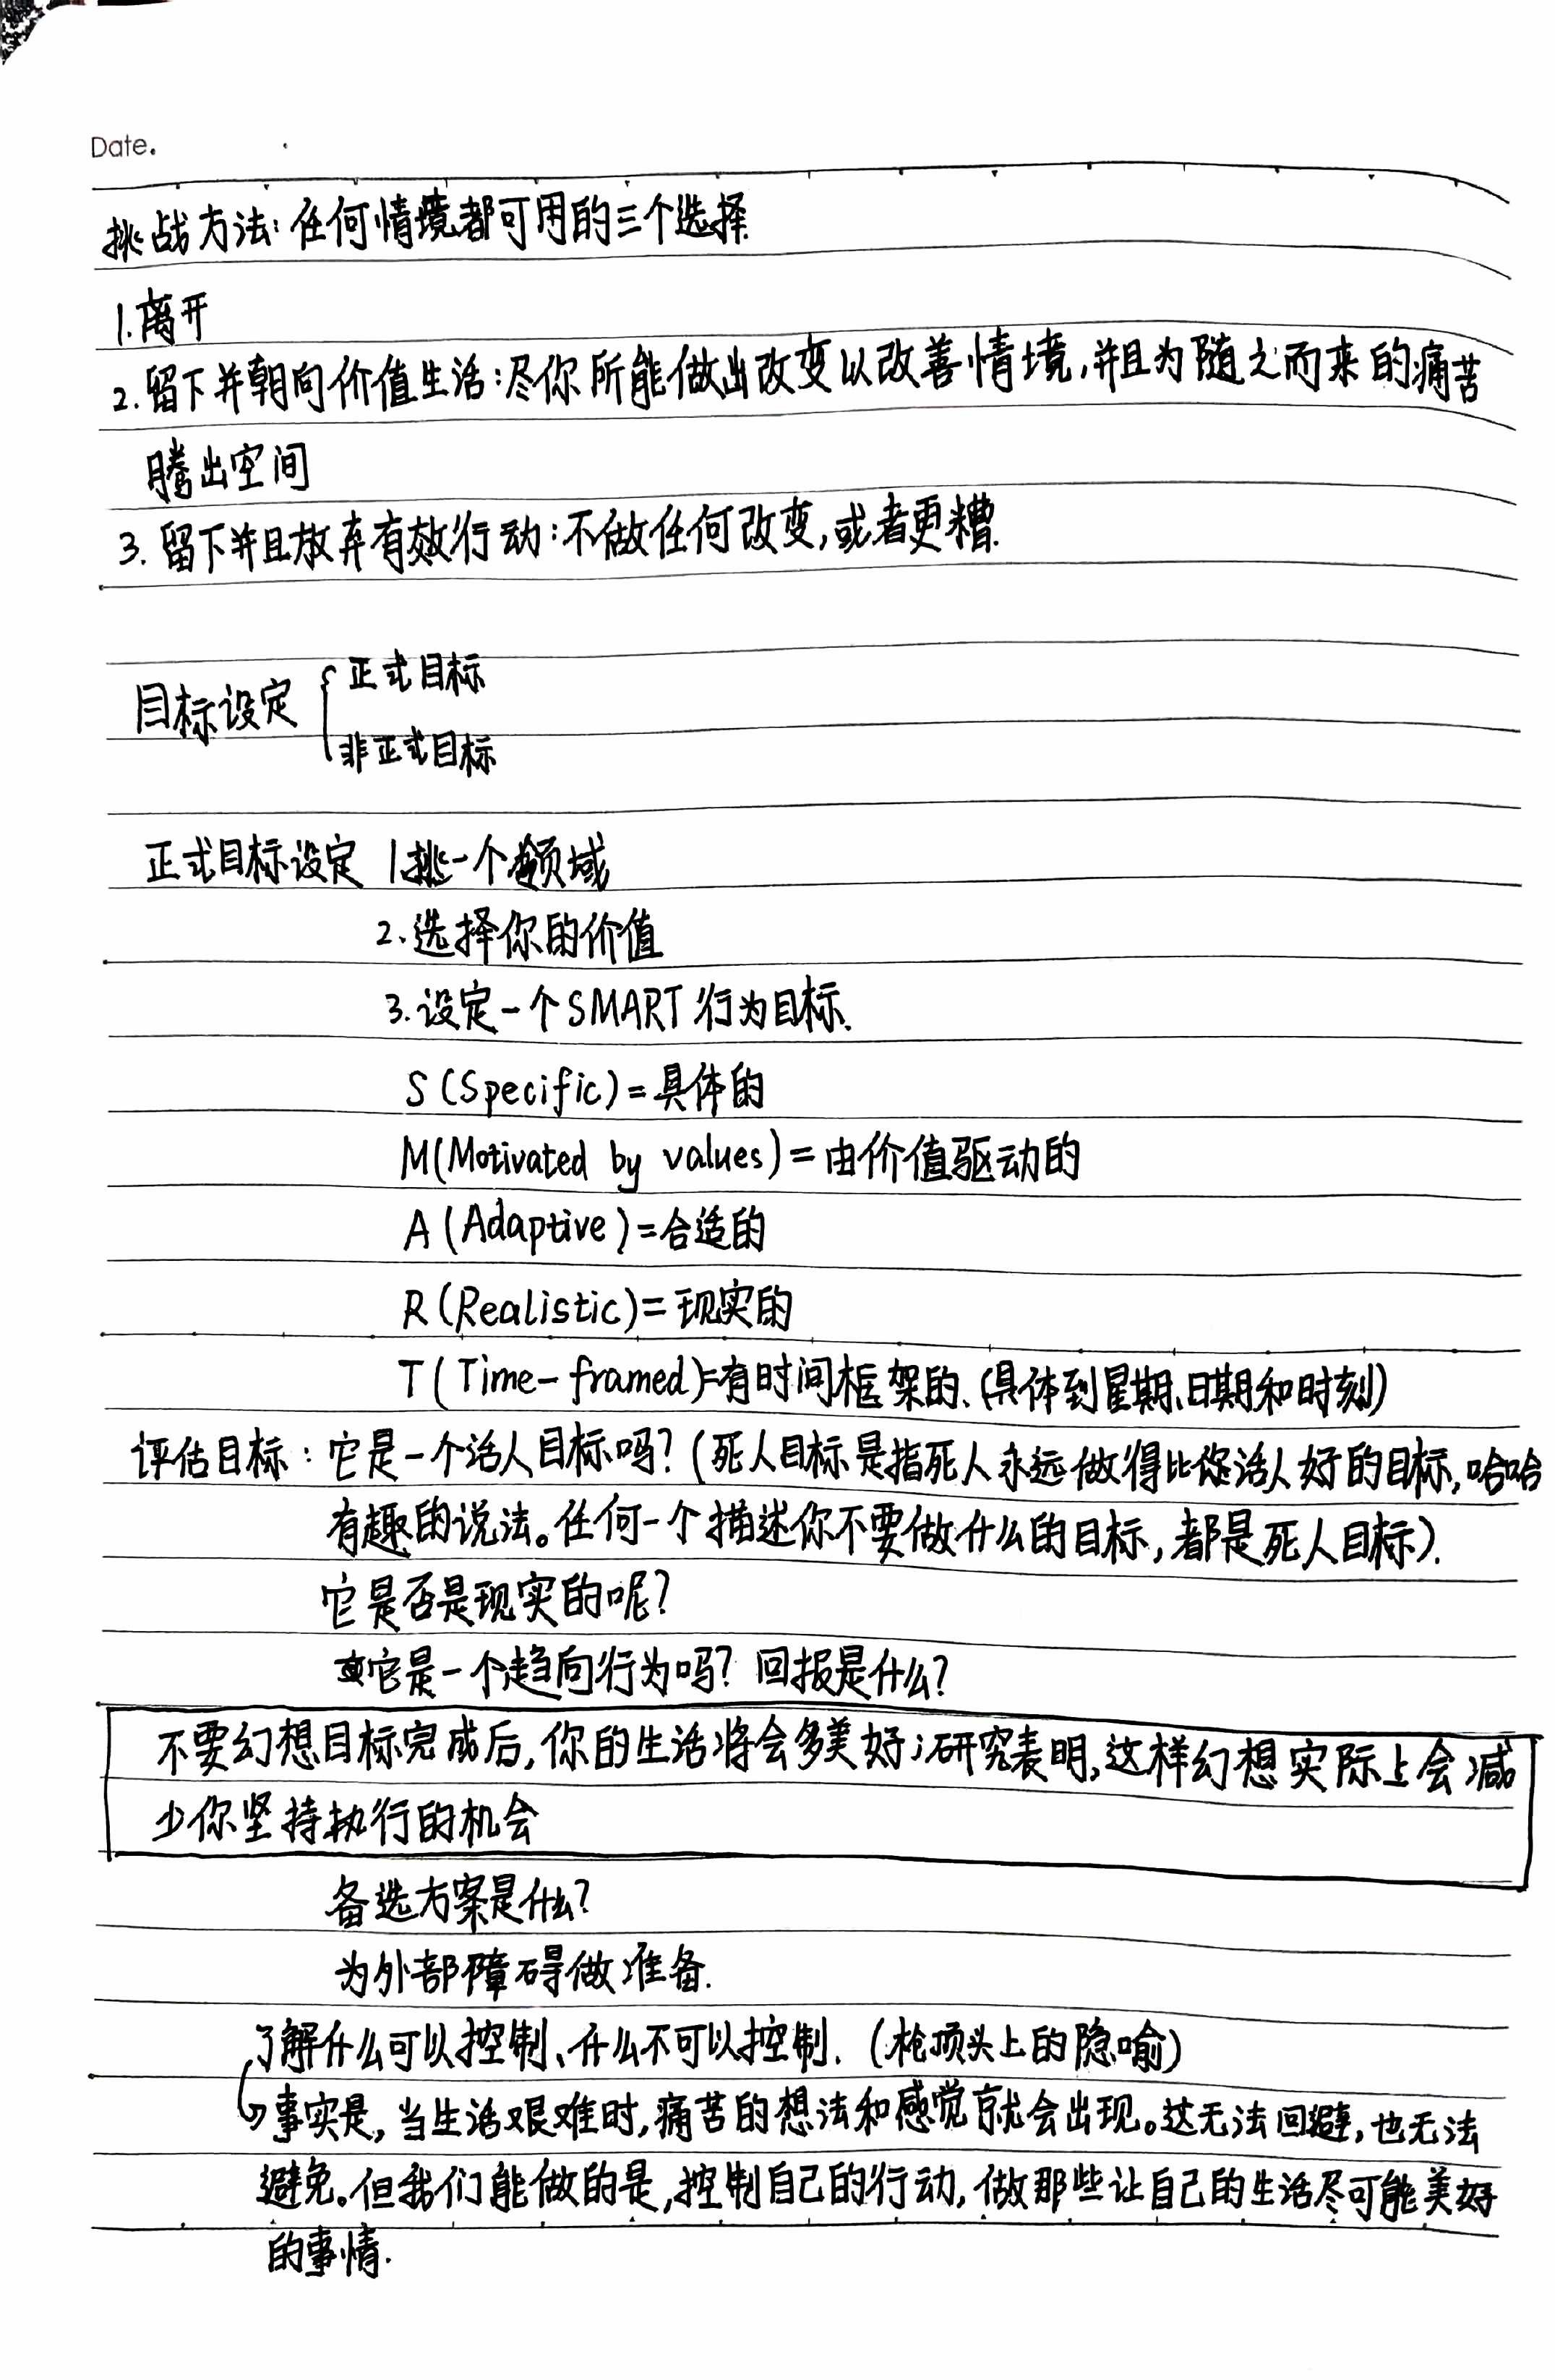 Date.
挑战方法：任何情境都可用的三个选择.
1.离开
2.留下并朝向价值生活：尽你所能做出改变以改善情境，并且为随之而来的痛苦
腾出空间
3.留下并且放弃有效行动：不做任何改变，或者更糟.
正式目标
目标设定
非正式目标
正式目标设定 1.挑一个领域
2.选择你的价值
3.设定一个SMART行为目标.
S(Specific)=具体的
M(Motivated by values)=由价值驱动的
A(Adaptive)=合适的
R(Realistic)=现实的
T(Time-framed)=有时间框架的.(具体到星期、日期和时刻)
评估目标：它是一个活人目标吗？(死人目标是指死人永远做得比你活人好的目标，哈哈
有趣的说法。任何一个描述你不要做什么的目标，都是死人目标).
它是否是现实的呢？
它是一个趋向行为吗？回报是什么？
不要幻想目标完成后，你的生活将会多美好；研究表明，这样幻想实际上会减
少你坚持执行的机会
备选方案是什么？
为外部障碍做准备.
了解什么可以控制、什么不可以控制.(枪顶头上的隐喻)
事实是，当生活艰难时，痛苦的想法和感觉就会出现。这无法回避，也无法
避免。但我们能做的是，控制自己的行动，做那些让自己的生活尽可能美好
的事情.